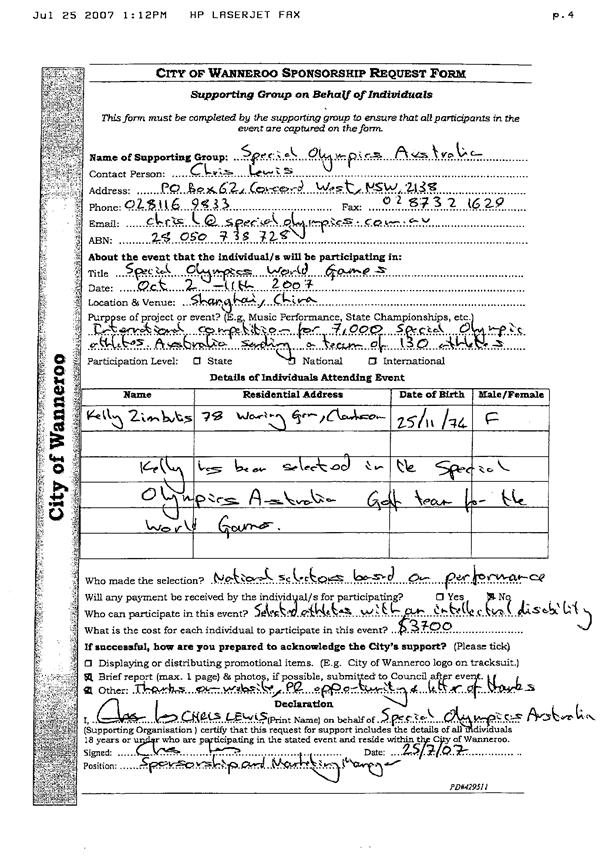 Jul 25 2007 1:12PM HP LASERJET FAX p.4
CITY OF WANNEROO SPONSORSHIP REQUEST FORM
Supporting Group on Behalf of Individuals
This form must be completed by the supporting group to ensure that all participants in the
event are captured on the form.
Name of Supporting Group: Special Olympics Australia
Contact Person: Chris Lewis
Address: PO Box 62, Concord West, NSW, 2138
Phone: 028116 9833 Fax: 02 8732 1629
Email: chris l@specialolympics.com.au
ABN: 28 050 738 728
About the event that the individual/s will be participating in:
Title Special Olympics World Games
Date: Oct 2 - 11th 2007
Location & Venue: Shanghai, China
Purpose of project or event? (E.g, Music Performance, State Championships, etc.)
International competition for 7,000 Special Olympic
athletes. Australia sending a team of 130 athletes
Participation Level: ☐ State ☐ National ☐ International
Details of Individuals Attending Event
Name Residential Address Date of Birth Male/Female
Kelly Zimbuts 78 Waring Grn, Clarkson 25/11/74 F
Kelly has been selected in the Special
Olympics Australia Golf team for the
World Games.
City of Wanneroo
Who made the selection? National selectors based on performance
Will any payment be received by the individual/s for participating? ☐ Yes ☒ No
Who can participate in this event? Selected athletes with an intellectual disability
What is the cost for each individual to participate in this event? $3700
If successful, how are you prepared to acknowledge the City's support? (Please tick)
☐ Displaying or distributing promotional items. (E.g. City of Wanneroo logo on tracksuit.)
☒ Brief report (max. 1 page) & photos, if possible, submitted to Council after event.
☒ Other: Thanks on website, PR opportunity & letter of thanks
Declaration
I, CHRIS LEWIS (Print Name) on behalf of Special Olympics Australia
(Supporting Organisation) certify that this request for support includes the details of all individuals
18 years or under who are participating in the stated event and reside within the City of Wanneroo.
Signed: Date: 25/7/07
Position: Sponsorship and Marketing Manager
PD#429511